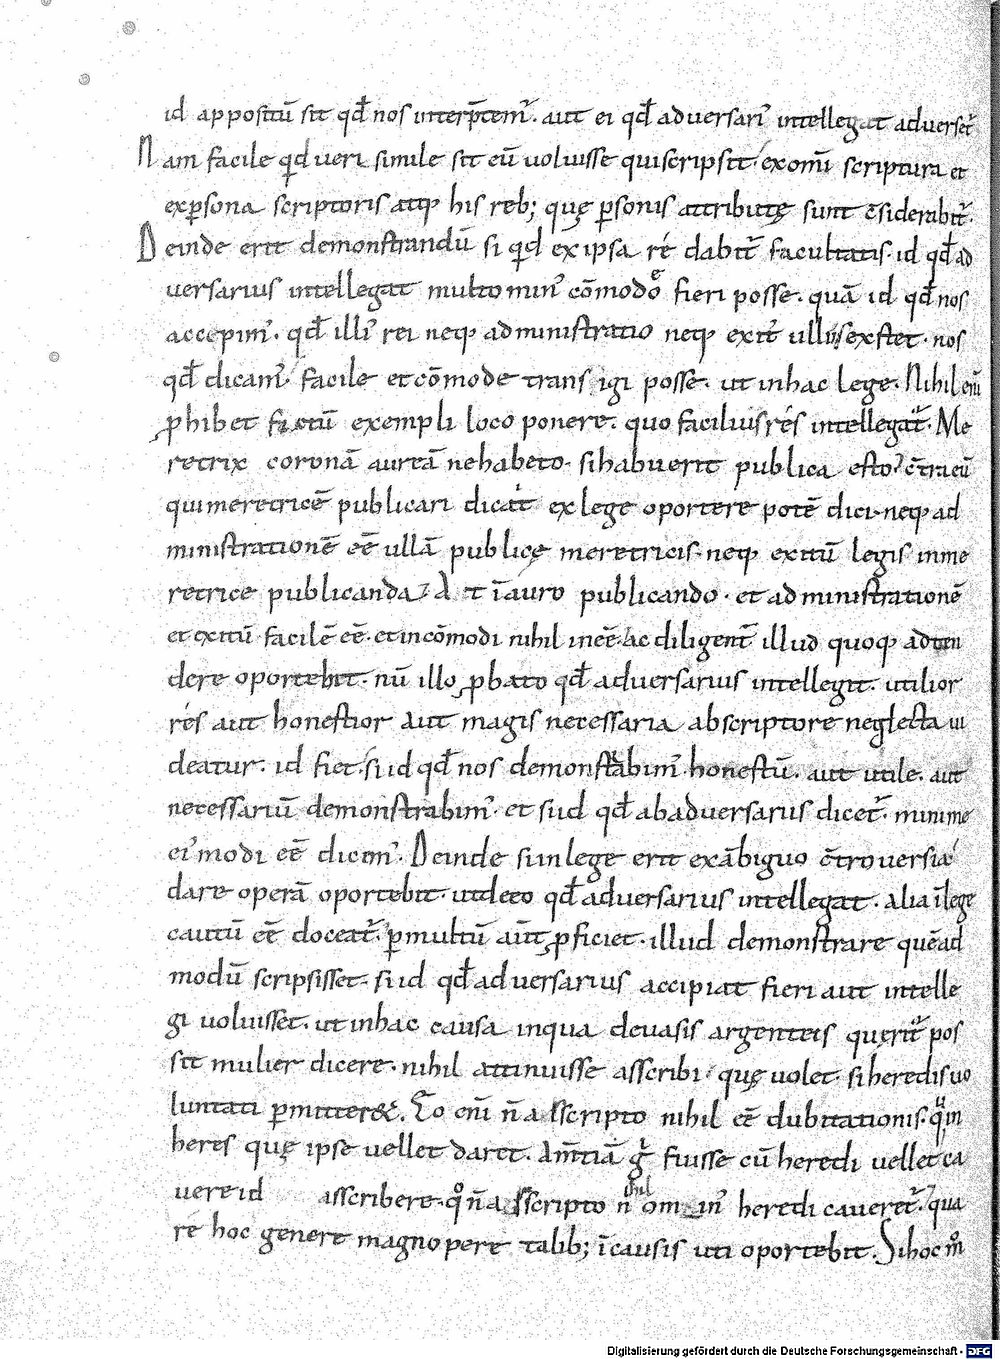 id appositū sit qd̄ nos interp̄temr̄. aut ei qd̄ adversari' intellegat adverset̄
Nam facile qd veri simile sit eū voluisse qui scripsit ex om̄i scriptura et
ex p̱sona scriptoris atq; his reb; quę p̱sonis attributę sunt c̄siderabit̄.
Deinde erit demonstrandū si qd ex ipsa ré dabit̄ facultatis. id qd̄ ad
versarius intellegat multo min' cōmodo fieri posse. quā id qd̄ nos
accepim'. qd̄ illi' rei neq; administratio neq; exit' ullus exstet. nos
qd̄ dicam'. facile et cōmode trans igi posse. ut in hac lege. Nihil eni
p̄hibet fictū exempli loco ponere. quo facilius rés intellegat̄. Me
retrix coronā aureā ne habeto. si habuerit publica esto. c̄tra eū
qui meretricē publicari dicat ex lege oportere potē dici. neq; ad
ministrationē eē ullā publicę meretricis. neq; exitū legis in me
retrice publicanda. At ī auro publicando. et administrationē
et exitū facilē eē. et incōmodi nihil ineē. Ac diligent̄ illud quoq; adten
dere oportebit. nū illo p̄bato qd̄ adversarius intellegit. utilior
rés aut honestior aut magis necessaria ab scriptore neglecta vi
deatur. id fiet. si id qd̄ nos demonstrabim' honestū. aut utile. aut
necessariū demonstrabim'. et si id qd̄ ab adversarius dicet̄. minime
ei' modi eē dicem'. Deinde si in lege erit ex ābiguo c̄troversia
dare operā oportebit. ut de eo qd̄ adversarius intellegat. alia ī lege
cautū eē doceat̄. p̱multū aūt p̄ficiet. illud demonstrare quēad
modū scripsisset. si id qd̄ adversarius accipiat fieri aut intelle
gi voluisset. ut in hac causa in qua de vasis argenteis querit̄ pos
sit mulier dicere. nihil attinuisse asscribi. quę volet. si heredis vo
luntati p̱mitteret. Eo eni n̄ asscripto nihil eē dubitationis. qn
heres quę ipse vellet daret. Am̄tiā g̊ fuisse cū heredi vellet ca
vere id asscribere. qo n̄ asscripto nihil om in' heredi caveret̄. qua
ré hoc genere magnopere talib; ī causis uti oportebit. Si hoc mo